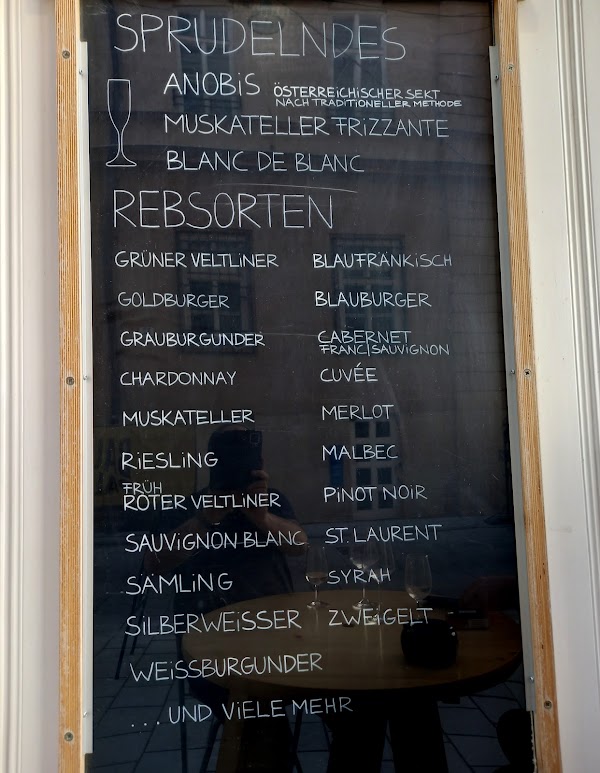 SPRUDELNDES
ANOBIS ÖSTERREICHISCHER SEKT
NACH TRADITIONELLER METHODE
MUSKATELLER FRIZZANTE
BLANC DE BLANC
REBSORTEN
GRÜNER VELTLINER
GOLDBURGER
GRAUBURGUNDER
CHARDONNAY
MUSKATELLER
RIESLING
FRÜH
ROTER VELTLINER
SAUVIGNON BLANC
SÄMLING
SILBERWEISSER
WEISSBURGUNDER
...UND VIELE MEHR
BLAUFRÄNKISCH
BLAUBURGER
CABERNET
FRANC|SAUVIGNON
CUVÉE
MERLOT
MALBEC
PINOT NOIR
ST. LAURENT
SYRAH
ZWEIGELT